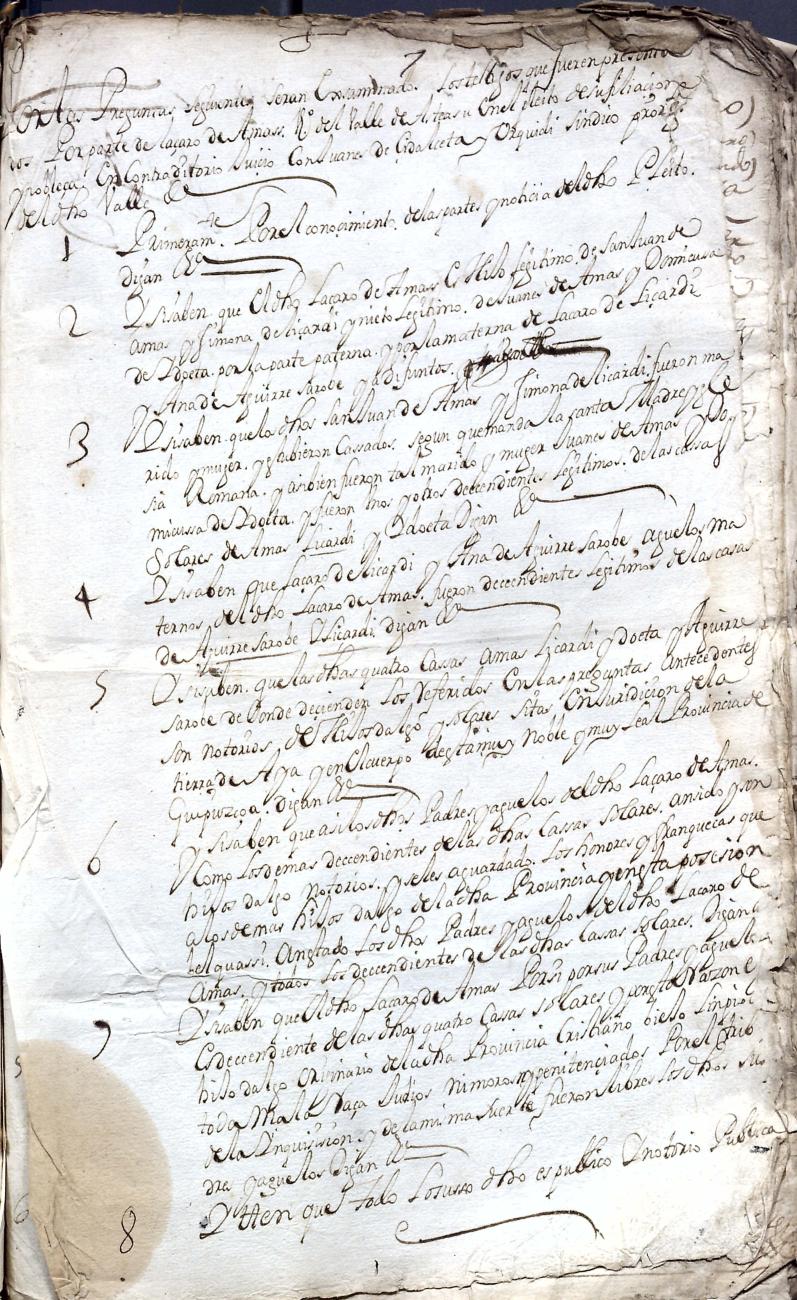 Por las Preguntas siguientes seran Examinados. Los testigos que fueren presenta
dos Por parte de Laçaro de Amass. Vº del Valle de en el pleito de su filiacion
y nobleça En Contraditorio Juiçio Con Juanes de y Urquidi Sindico
del dho Valle &
1 Primeramte. Por el conoçimiento. de las partes y notiçia del dho Pleito.
digan &
2 Y si saben. que El dho Laçaro de Amas Es Hijo legitimo. de San Juan de
Amas y Simona de liçardi y nieto legitimo. de Juanes de Amas y Domicusa
de Ydoeta. por la parte paterna. y por la materna de Laçaro de Liçardi
y Ana de Aguirre Sarobe ya difuntos.
3 Y si saben. que los dhos San Juan de Amas y Simona de licardi. fueron ma
rido y muger. y estubieron Cassados. segun que manda la santa Madre Ygle
sia Romana. y asi bien fueron tal marido y muger Juanes de Amas y Do
micussa de Ydoeta. y fueron Unos y otros deçendientes legitimos. de las cassas
Solares de Amas Licardi y Ydoeta Digan &
4 Y si saben que Laçaro de Licardi y Ana de Aguirre Sarobe aguelos ma
ternos. del dho Laçaro de Amas. fueron decendientes legitimos de las casas
de Aguirre Sarobe Y Licardi. digan &
5 Y si saben. que las dhas quatro Cassas Amas Liçardi Ydoeta y Aguirre
Sarobe de donde deçienden Los Referidos En las preguntas Antecedentes
son notorios. de Hijosdalgo y solares sitas En Juridicion de la
tierra de Aya y en El cuerpo desta muy Noble y muy leal Provinçia de
Guipuzcoa. digan &
6 Y si saben que asi los dhos Padres y aguelos del dho Laçaro de Amas.
Como los demas decendientes de las dhas Cassas Solares. an sido y son
hijos dalgo notorios. y se les a guardado. Los honores y franqueças que
a los demas hijos dalgo de la dha Provinçia y en esta posesion
bel quassi. An estado los dhos Padres y aguelos del dho Laçaro de
Amas. y todos los decendientes de las dhas Cassas Solares. Digan
7 Y si saben que El dho Laçaro de Amas Por si por sus Padres y aguelos
Es deccendiente de las dhas quatro Cassas solares y por esta Razon Es
hijo dalgo Orijinario de la dha Provinçia Cristiano biejo linpio de
toda Mala Raça Judios ni moros ni penitençiados Por el
de la Ynquisision. y de la misma suerte fueron libres los dhos
dres y aguelos Digan &
8 Yten que todo lo susso dho es publico Y notorio Publica